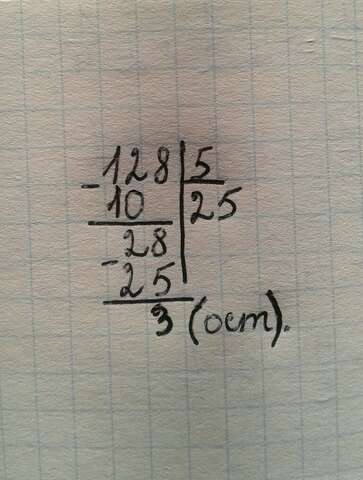 -128|5
10 |25
-28
25
3 (ост).